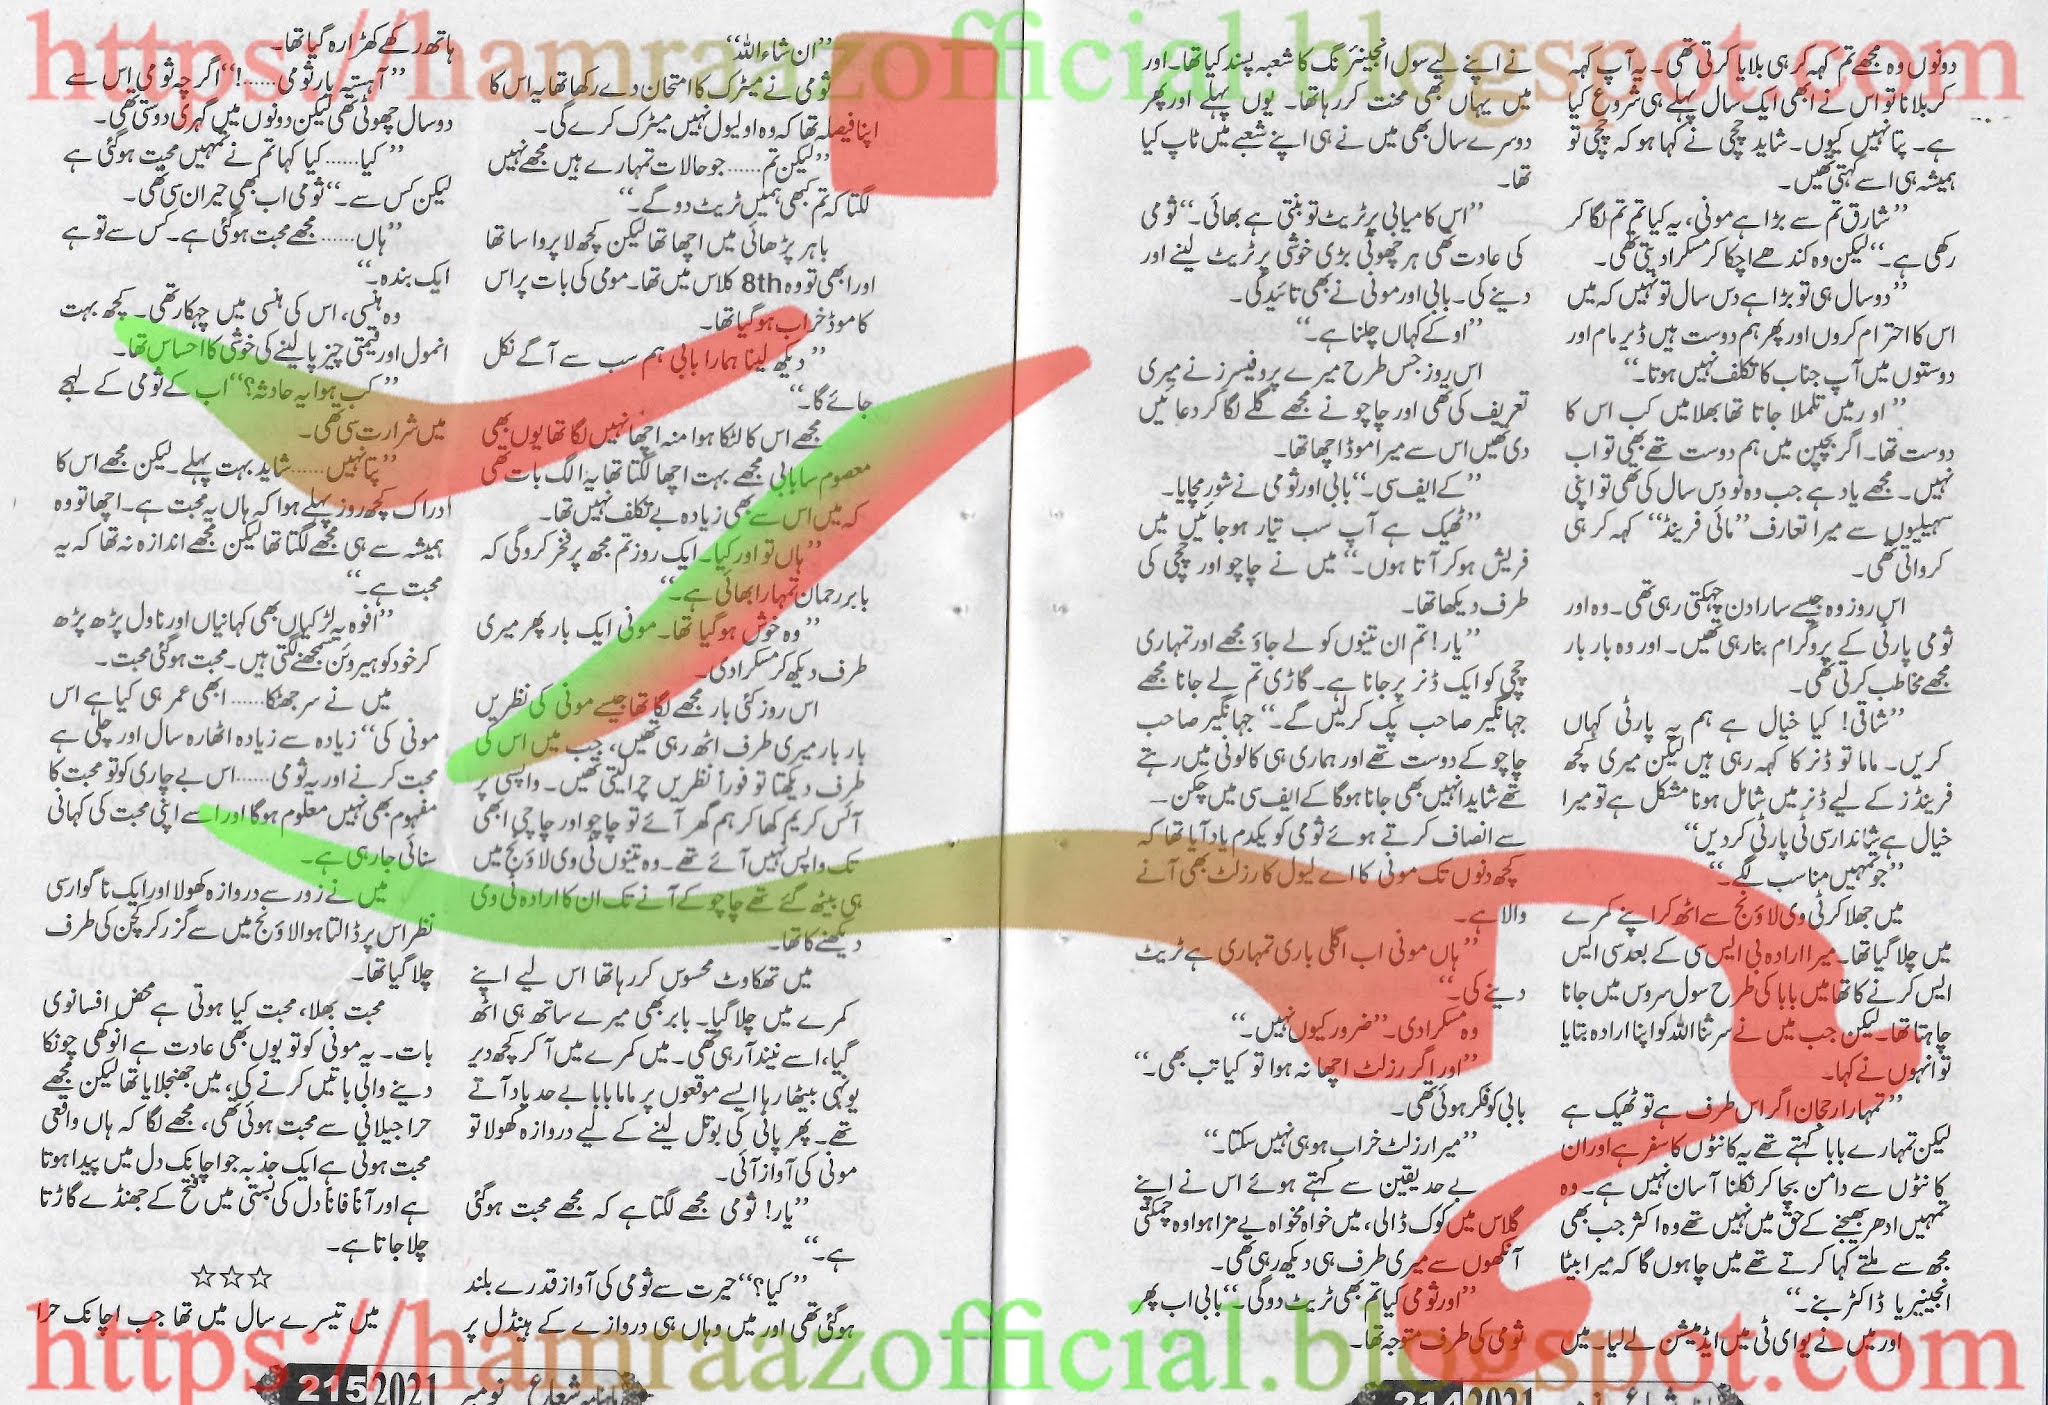 https://hamraazofficial.blogspot.com
دونوں وہ مجھے تم کہہ کر ہی بلایا کرتی تھی۔ یہ آپ کہہ
کر بلانا تو اس نے ابھی ایک سال پہلے ہی شروع کیا
ہے۔ پتا نہیں کیوں۔ شاید چچی نے کہا ہو کہ چچی تو
ہمیشہ ہی اسے کہتی تھیں۔
”شارق تم سے بڑا ہے مونی، یہ کیا تم تم لگا کر
رکھی ہے۔“ لیکن وہ کندھے اچکا کر مسکرا دیتی تھی۔
”دو سال ہی تو بڑا ہے دس سال تو نہیں کہ میں
اس کا احترام کروں اور پھر ہم دوست ہیں ڈیر مام اور
دوستوں میں آپ جناب کا تکلف نہیں ہوتا۔“
”اور میں تلملا جاتا تھا بھلا میں کب اس کا
دوست تھا۔ اگر بچپن میں ہم دوست تھے بھی تو اب
نہیں۔ مجھے یاد ہے جب وہ نو دس سال کی تھی تو اپنی
سہیلیوں سے میرا تعارف ”مائی فرینڈ“ کہہ کر ہی
کرواتی تھی۔
اس روز وہ جیسے سارا دن چہکتی رہی تھی۔ وہ اور
ثومی پارٹی کے پروگرام بنا رہی تھیں۔ اور وہ بار بار
مجھے مخاطب کرتی تھی۔
”شاقی! کیا خیال ہے ہم یہ پارٹی کہاں
کریں۔ ماما تو ڈنر کا کہہ رہی ہیں لیکن میری کچھ
فرینڈز کے لیے ڈنر میں شامل ہونا مشکل ہے تو میرا
خیال ہے شاندار سی ٹی پارٹی کر دیں“
”جو تمہیں مناسب لگے۔“
میں جھلا کر ٹی وی لاؤنج سے اٹھ کر اپنے کمرے
میں چلا گیا تھا۔ میرا ارادہ بی ایس سی کے بعد سی ایس
ایس کرنے کا تھا میں بابا کی طرح سول سروس میں جانا
چاہتا تھا۔ لیکن جب میں نے سر ثنا اللہ کو اپنا ارادہ بتایا
تو انہوں نے کہا۔
”تمہارا رجحان اگر اس طرف ہے تو ٹھیک ہے
لیکن تمہارے بابا کہتے تھے یہ کانٹوں کا سفر ہے اور ان
کانٹوں سے دامن بچا کر نکلنا آسان نہیں ہے۔ وہ
تمہیں ادھر بھیجنے کے حق میں نہیں تھے وہ اکثر جب بھی
مجھ سے ملتے کہا کرتے تھے میں چاہوں گا کہ میرا بیٹا
انجینیر یا ڈاکٹر بنے۔“
اور میں نے یو ای ٹی میں ایڈمیشن لے لیا۔ میں
نے اپنے لیے سول انجینئرنگ کا شعبہ پسند کیا تھا۔ اور
میں یہاں بھی محنت کر رہا تھا۔ یوں پہلے اور پھر
دوسرے سال بھی میں نے ہی اپنے شعبے میں ٹاپ کیا
تھا۔
”اس کامیابی پر ٹریٹ تو بنتی ہے بھائی۔“ ثومی
کی عادت تھی ہر چھوٹی بڑی خوشی پر ٹریٹ لینے اور
دینے کی۔ بابی اور مونی نے بھی تائید کی۔
”اوکے کہاں چلنا ہے۔“
اس روز جس طرح میرے پروفیسرز نے میری
تعریف کی تھی اور چاچو نے مجھے گلے لگا کر دعائیں
دی تھیں اس سے میرا موڈ اچھا تھا۔
”کے ایف سی۔“ بابی اور ثومی نے شور مچایا۔
”ٹھیک ہے آپ سب تیار ہو جائیں میں
فریش ہو کر آتا ہوں۔“ میں نے چاچو اور چچی کی
طرف دیکھا تھا۔
”یار! تم ان تینوں کو لے جاؤ مجھے اور تمہاری
چچی کو ایک ڈنر پر جانا ہے۔ گاڑی تم لے جانا مجھے
جہانگیر صاحب پک کر لیں گے۔“ جہانگیر صاحب
چاچو کے دوست تھے اور ہماری ہی کالونی میں رہتے
تھے شاید انہیں بھی جانا ہوگا کے ایف سی میں چکن ـ
سے انصاف کرتے ہوئے ثومی کو یکدم یاد آیا تھا کہ
کچھ دنوں تک مونی کا اے لیول کا رزلٹ بھی آنے
والا ہے۔
”ہاں مونی اب اگلی باری تمہاری ہے ٹریٹ
دینے کی۔“
وہ مسکرا دی۔ ”ضرور کیوں نہیں۔“
”اور اگر رزلٹ اچھا نہ ہوا تو کیا تب بھی۔“
بابی کو فکر ہوئی تھی۔
”میرا رزلٹ خراب ہو ہی نہیں سکتا۔“
بے حد یقین سے کہتے ہوئے اس نے اپنے
گلاس میں کوک ڈالی، میں خواہ مخواہ بے مزا ہوا وہ چمکتی
آنکھوں سے میری طرف ہی دیکھ رہی تھی۔
”اور ثومی کیا تم بھی ٹریٹ دو گی۔“ بابی اب پھر
ثومی کی طرف متوجہ تھا۔
”ان شاء اللہ“
ثومی نے میٹرک کا امتحان دے رکھا تھا یہ اس کا
اپنا فیصلہ تھا کہ وہ او لیول نہیں میٹرک کرے گی۔
”لیکن تم...... جو حالات تمہارے ہیں مجھے نہیں
لگتا کہ تم کبھی ہمیں ٹریٹ دو گے۔“
بابر پڑھائی میں اچھا تھا لیکن کچھ لاپروا سا تھا
اور ابھی تو وہ 8th کلاس میں تھا۔ مومی کی بات پر اس
کا موڈ خراب ہو گیا تھا۔
”دیکھ لینا ہمارا بابی ہم سب سے آگے نکل
جائے گا۔“
مجھے اس کا لٹکا ہوا منہ اچھا نہیں لگا تھا یوں بھی
معصوم سا بابی مجھے بہت اچھا لگتا تھا یہ الگ بات تھی
کہ میں اس سے بھی زیادہ بے تکلف نہیں تھا۔
”ہاں تو اور کیا۔ ایک روز تم مجھ پر فخر کرو گی کہ
بابر رحمان تمہارا بھائی ہے۔“
”وہ خوش ہو گیا تھا۔ مونی ایک بار پھر میری
طرف دیکھ کر مسکرا دی۔
اس روز کئی بار مجھے لگا تھا جیسے مونی کی نظریں
بار بار میری طرف اٹھ رہی تھیں، جب میں اس کی
طرف دیکھتا تو فوراً نظریں چرا لیتی تھیں۔ واپسی پر
آئس کریم کھا کر ہم گھر آئے تو چاچو اور چاچی ابھی
تک واپس نہیں آئے تھے۔ وہ تینوں ٹی وی لاؤنج میں
ہی بیٹھ گئے تھے چاچو کے آنے تک ان کا ارادہ ٹی وی
دیکھنے کا تھا۔
میں تھکاوٹ محسوس کر رہا تھا اس لیے اپنے
کمرے میں چلا گیا۔ بابر بھی میرے ساتھ ہی اٹھ
گیا، اسے نیند آ رہی تھی۔ میں کمرے میں آ کر کچھ دیر
یونہی بیٹھا رہا ایسے موقعوں پر ماما بابا بے حد یاد آتے
تھے۔ پھر پانی کی بوتل لینے کے لیے دروازہ کھولا تو
مونی کی آواز آئی۔
”یار! ثومی مجھے لگتا ہے کہ مجھے محبت ہو گئی
ہے۔“
”کیا؟“ حیرت سے ثومی کی آواز قدرے بلند
ہو گئی تھی اور میں وہاں ہی دروازے کے ہینڈل پر
ہاتھ رکھے کھڑا رہ گیا تھا۔
”آہستہ یار ثومی......!“ اگرچہ ثومی اس سے
دو سال چھوٹی تھی لیکن دونوں میں گہری دوستی تھی۔
”کیا...... کیا کہا تم نے تمہیں محبت ہو گئی ہے
لیکن کس سے۔“ ثومی اب بھی حیران سی تھی۔
”ہاں...... مجھے محبت ہو گئی ہے۔ کس سے تو ہے
ایک بندہ۔“
وہ ہنسی، اس کی ہنسی میں چہکار تھی۔ کچھ بہت
انمول اور قیمتی چیز پا لینے کی خوشی کا احساس تھا۔
”کب ہوا یہ حادثہ؟“ اب کے ثومی کے لہجے
میں شرارت سی تھی۔
”پتا نہیں...... شاید بہت پہلے۔ لیکن مجھے اس کا
ادراک کچھ روز پہلے ہوا کہ ہاں یہ محبت ہے۔ اچھا تو وہ
ہمیشہ سے ہی مجھے لگتا تھا لیکن مجھے اندازہ نہ تھا کہ یہ
محبت ہے۔“
”افوہ یہ لڑکیاں بھی کہانیاں اور ناول پڑھ پڑھ
کر خود کو ہیروئن سمجھنے لگتی ہیں۔ محبت ہو گئی محبت۔
میں نے سر جھٹکا...... ابھی عمر ہی کیا ہے اس
مونی کی“ زیادہ سے زیادہ اٹھارہ سال اور چلی ہے
محبت کرنے اور یہ ثومی...... اس بے چاری کو تو محبت کا
مفہوم بھی نہیں معلوم ہوگا اور اسے اپنی محبت کی کہانی
سنائی جا رہی ہے۔
میں نے زور سے دروازہ کھولا اور ایک ناگوار سی
نظر اس پر ڈالتا ہوا لاؤنج میں سے گزر کر کچن کی طرف
چلا گیا تھا۔
محبت بھلا، محبت کیا ہوتی ہے محض افسانوی
بات۔ یہ مونی کو تو یوں بھی عادت ہے انوکھی چونکا
دینے والی باتیں کرنے کی، میں جھنجلایا تھا لیکن مجھے
حرا جیلانی سے محبت ہوئی تھی، مجھے لگا کہ ہاں واقعی
محبت ہوتی ہے ایک جذبہ جو اچانک دل میں پیدا ہوتا
ہے اور آناً فاناً دل کی بستی میں فتح کے جھنڈے گاڑتا
چلا جاتا ہے۔
☆☆☆
میں تیسرے سال میں تھا جب اچانک حرا
https://hamraazofficial.blogspot.com
ماہنامہ شعاع نومبر 2021 214
ماہنامہ شعاع نومبر 2021 215